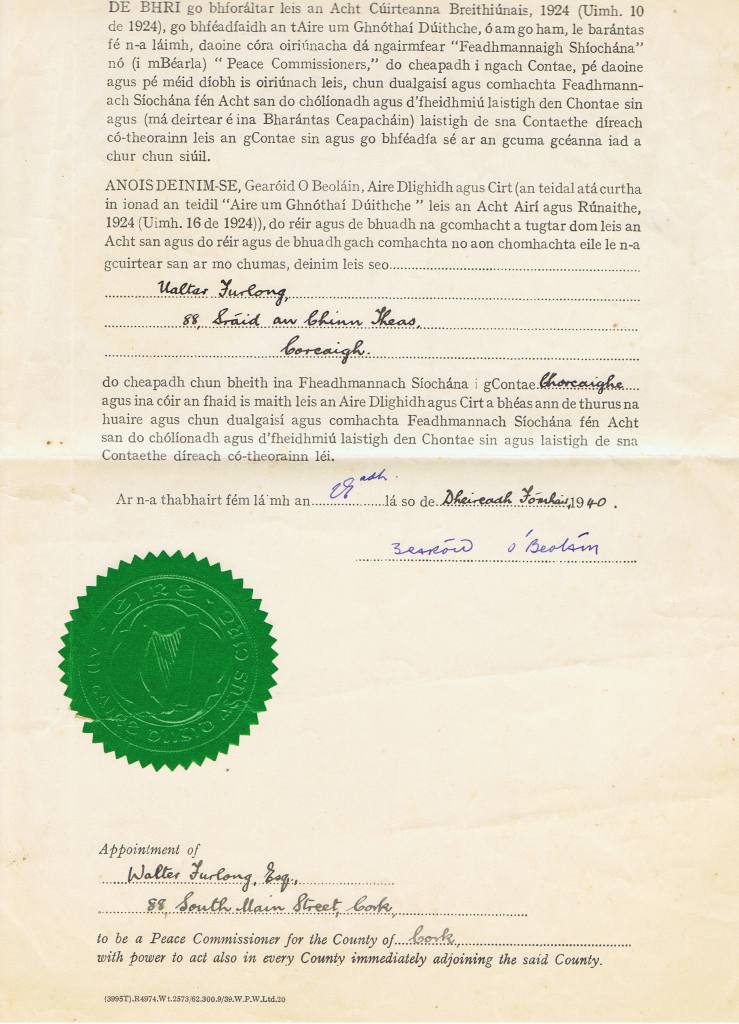 DE BHRI go bhforáltar leis an Acht Cúirteanna Breithiúnais, 1924 (Uimh. 10
de 1924), go bhféadfaidh an tAire um Ghnóthaí Dúithche, ó am go ham, le barántas
fé n-a láimh, daoine córa oiriúnacha dá ngairmfear "Feadhmannaigh Shíochána"
nó (i mBéarla) "Peace Commissioners," do cheapadh i ngach Contae, pé daoine
agus pé méid díobh is oiriúnach leis, chun dualgaisí agus comhachta Feadhmann-
ach Síochána fén Acht san do chólíonadh agus d'fheidhmiú laistigh den Chontae sin
agus (má deirtear é ina Bharántas Ceapacháin) laistigh de sna Contaethe díreach
có-theorainn leis an gContae sin agus go bhféadfa sé ar an gcuma gcéanna iad a
chur chun siúil.
ANOIS DEINIM-SE, Gearóid O Beoláin, Aire Dlighidh agus Cirt (an teidal atá curtha
in ionad an teidil "Aire um Ghnóthaí Dúithche" leis an Acht Airí agus Rúnaithe,
1924 (Uimh. 16 de 1924)), do réir agus de bhuadh na gcomhacht a tugtar dom leis an
Acht san agus do réir agus de bhuadh gach comhachta no aon chomhachta eile le n-a
gcuirtear san ar mo chumas, deinim leis seo
Ualtar Furlong,
88, Sráid an Chinn Theas,
Corcaigh.
do cheapadh chun bheith ina Fheadhmannach Síochána i gContae Chorcaighe
agus ina cóir an fhaid is maith leis an Aire Dlighidh agus Cirt a bhéas ann de thurus na
huaire agus chun dualgaisí agus comhachta Feadhmannach Síochána fén Acht
san do chólíonadh agus d'fheidhmiú laistigh den Chontae sin agus laistigh de sna
Contaethe díreach có-theorainn léi.
Ar n-a thabhairt fém láimh an 29adh. lá so de Dheireadh Fómhair, 1940.
Gearóid Ó'Beoláin
EIRE
AN AIRE DLIGHIDH AGUS CIRT
Appointment of
Walter Furlong, Esq.,
88, South Main Street, Cork,
to be a Peace Commissioner for the County of Cork,
with power to act also in every County immediately adjoining the said County.
(3995T).R4974.Wt.2573/62.300.9/39.W.P.W.Ltd.20